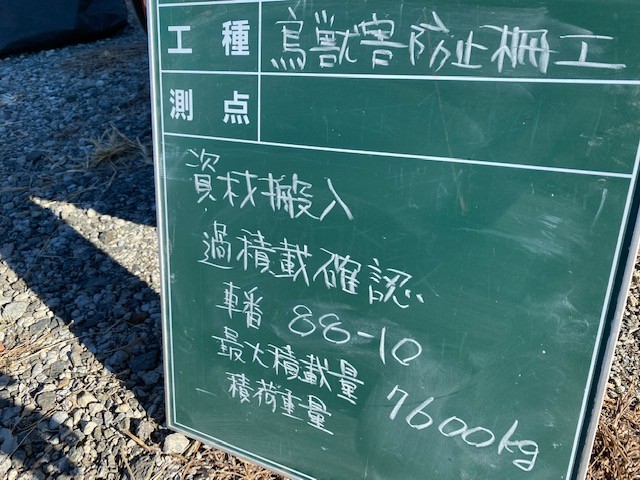 工種 鳥獣害防止柵工
測点
資材搬入
過積載確認
車番 88-10
最大積載量 7600kg
積荷重量